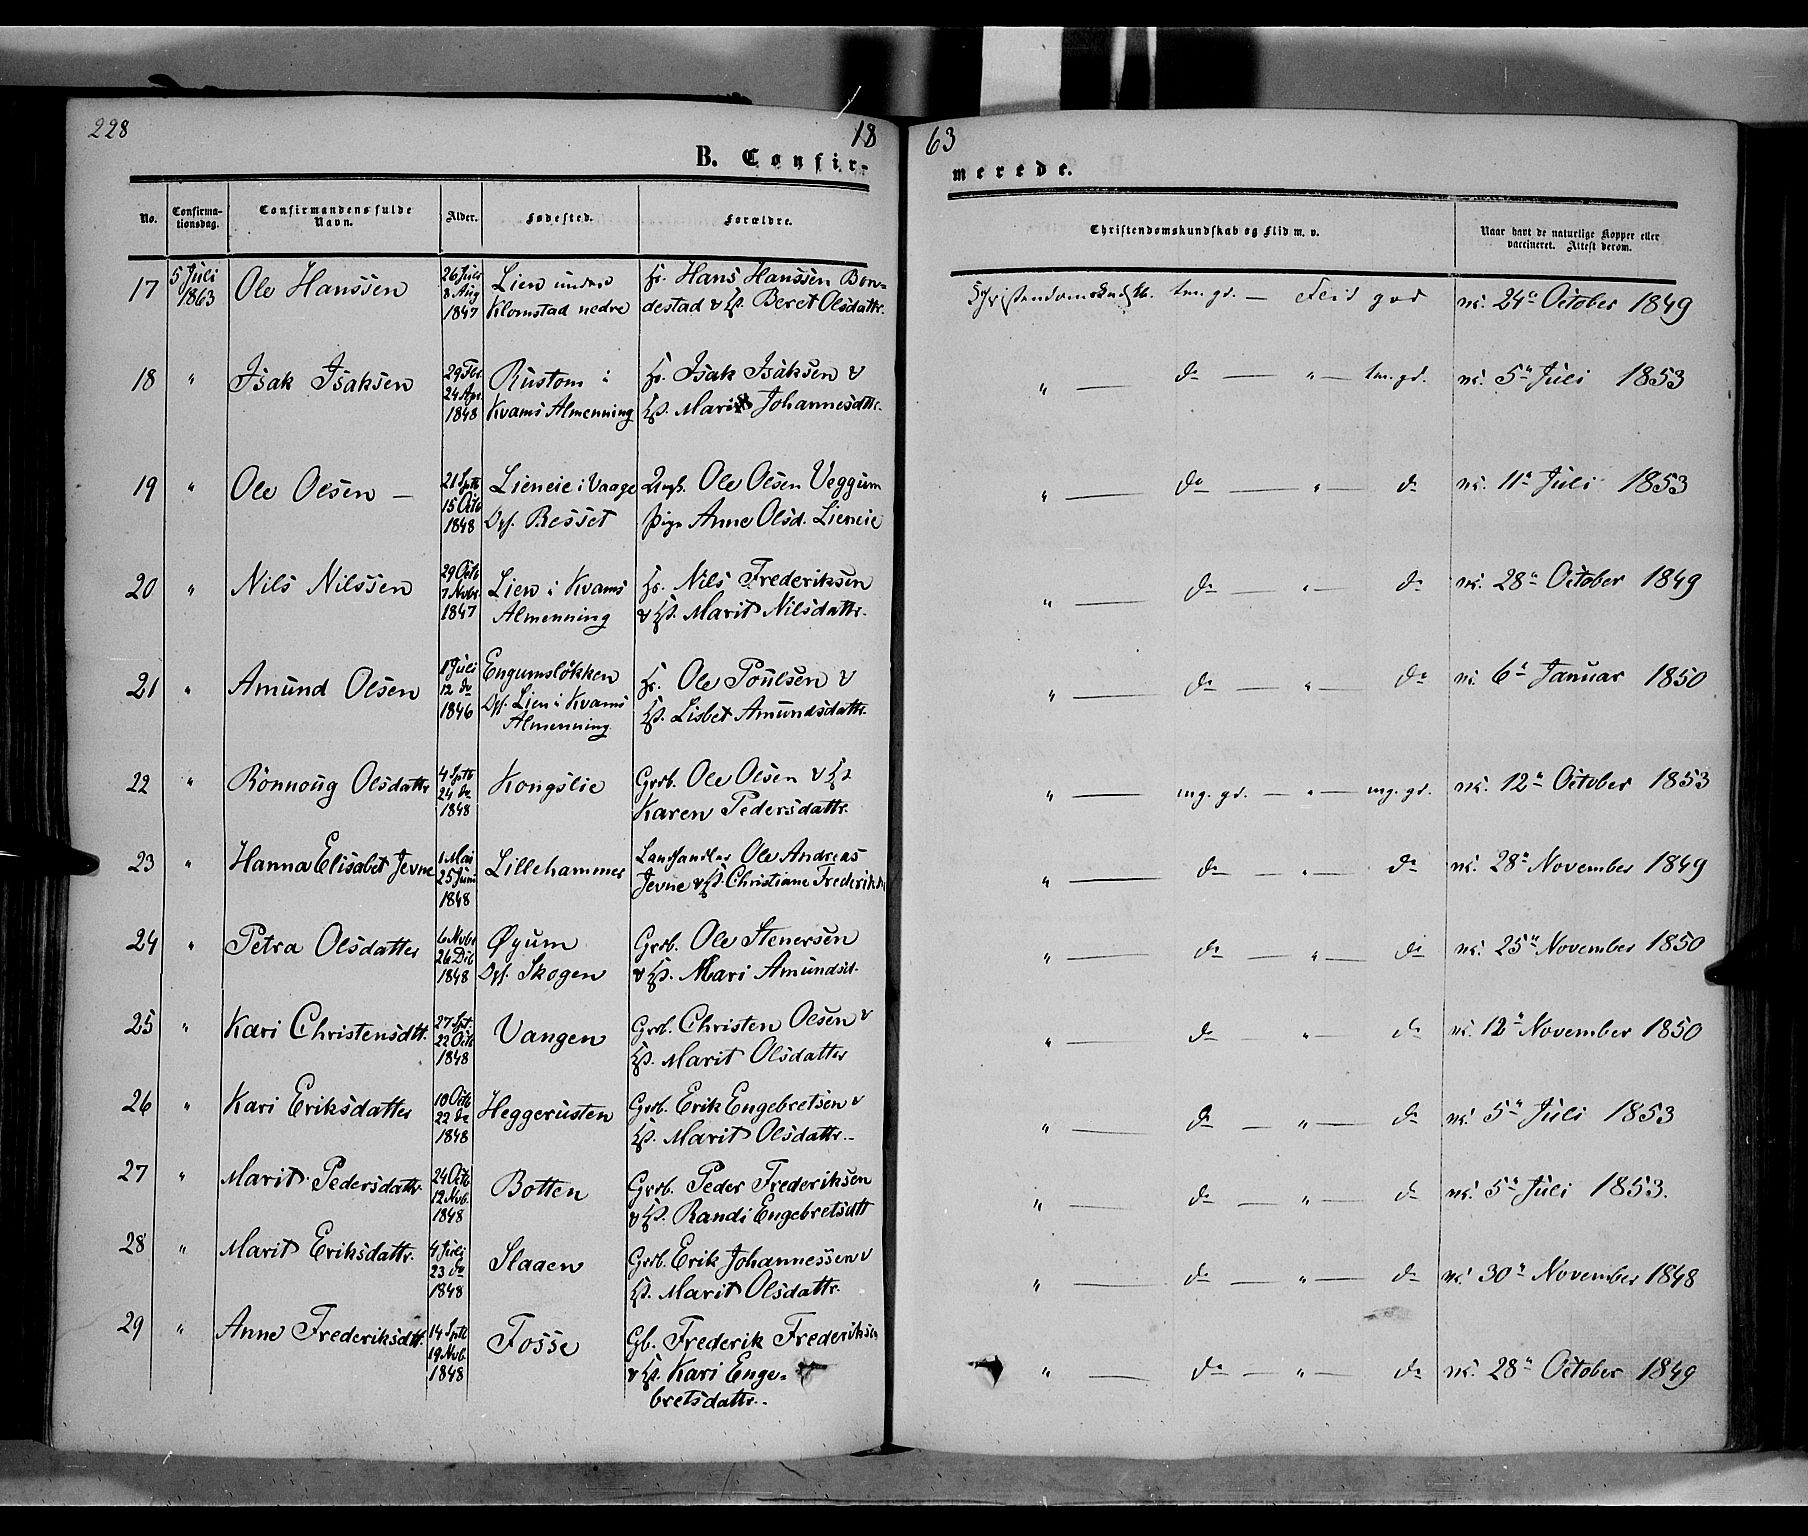 228
18 63
B. Confirmerede.
No. Confirmationsdag. Confirmandens fulde Navn. Alder. Fødested. Forældre. Christendomskundskab og Flid m. v. Naar havt de naturlige Kopper eller vaccineret. Attest derom.
17 5 Juli 1863 Ole Hanssen 26 Juli 8 Aug 1847 Lien under Klomstad nedre Hans Hanssen Bondestad & Beret Olsdattr. tm. gd. — Flid god vc. 24de October 1849
18 " Isak Isaksen 29 Fbr. 24 Apr. 1848 Rustom i Kvams Almenning Isak Isaksen & Marit Johannesdttr. " — do — " — tm. gd. vc. 5te Juli 1853
19 " Ole Olsen — 21 Sptb 15 Octb 1848 Lieneie i Vaage Opf. Besset Ungk. Ole Olsen Veggum Pige Anne Olsd. Lieneie " — do — " do vc. 11te Juli 1853
20 " Nils Nilssen 29 Octb 7 Nvbr. 1847 Lien i Kvams Almenning Nils Frederiksen & Marit Nilsdattr. " — do " do vc. 28de October 1849
21 " Amund Olsen 1 Juli 12 do 1846 Engumsløkken Opf. Lien i Kvams Almenning Ole Poulsen & Lisbet Amundsdattr. " — do — " — do vc. 6te Januar 1850
22 " Rønnoug Olsdattr 4 Sptb 24 do 1848 Kongslie Grdb. Ole Olsen & Karen Pedersdattr. " — mg. gd. — " — mg. gd. vc. 12te October 1853
23 " Hanna Elisabet Jevne 1 Mai 25 Juni 1848 Lillehammer Landhandler Ole Andreas Jevne & Christiane " — do " do vc. 28de November 1849
24 " Petra Olsdatter 6 Nvbr 26 Dcb 1848 Øyum Opf. Skogen Grdb. Ole Stenersen & Mari Amundsd. " — do — " — do vc. 25de November 1850
25 " Kari Christensdtt. 27 Spt. 22 Octb 1848 Vangen Grdb. Christen Olsen & Marit Olsdatter " — do — " do vc. 12te November 1850
26 " Kari Eriksdatter 10 Octb 22 do 1848 Heggerusten Grdb. Erik Engebretsen & Marit Olsdattr. " — do — " — do vc. 5te Juli 1853
27 " Marit Pedersdattr. 24 Octb 12 Nvb. 1848 Botten Grdb. Peder Frederiksen & Randi Engebretsdtt " — do — " — do vc. 5te Juli 1853.
28 " Marit Eriksdattr. 4 Juli 23 do 1848 Slaaen Grdb. Erik Johannessen & Marit Olsdattr. " — do — " — do vc. 30te November 1848
29 " Anne Frederiksdtt. 14 Sptb 19 Nvb. 1848 Fosse Gb. Frederik Frederiksen & Kari Engebretsdattr. " — do — " — do vc. 28de October 1849